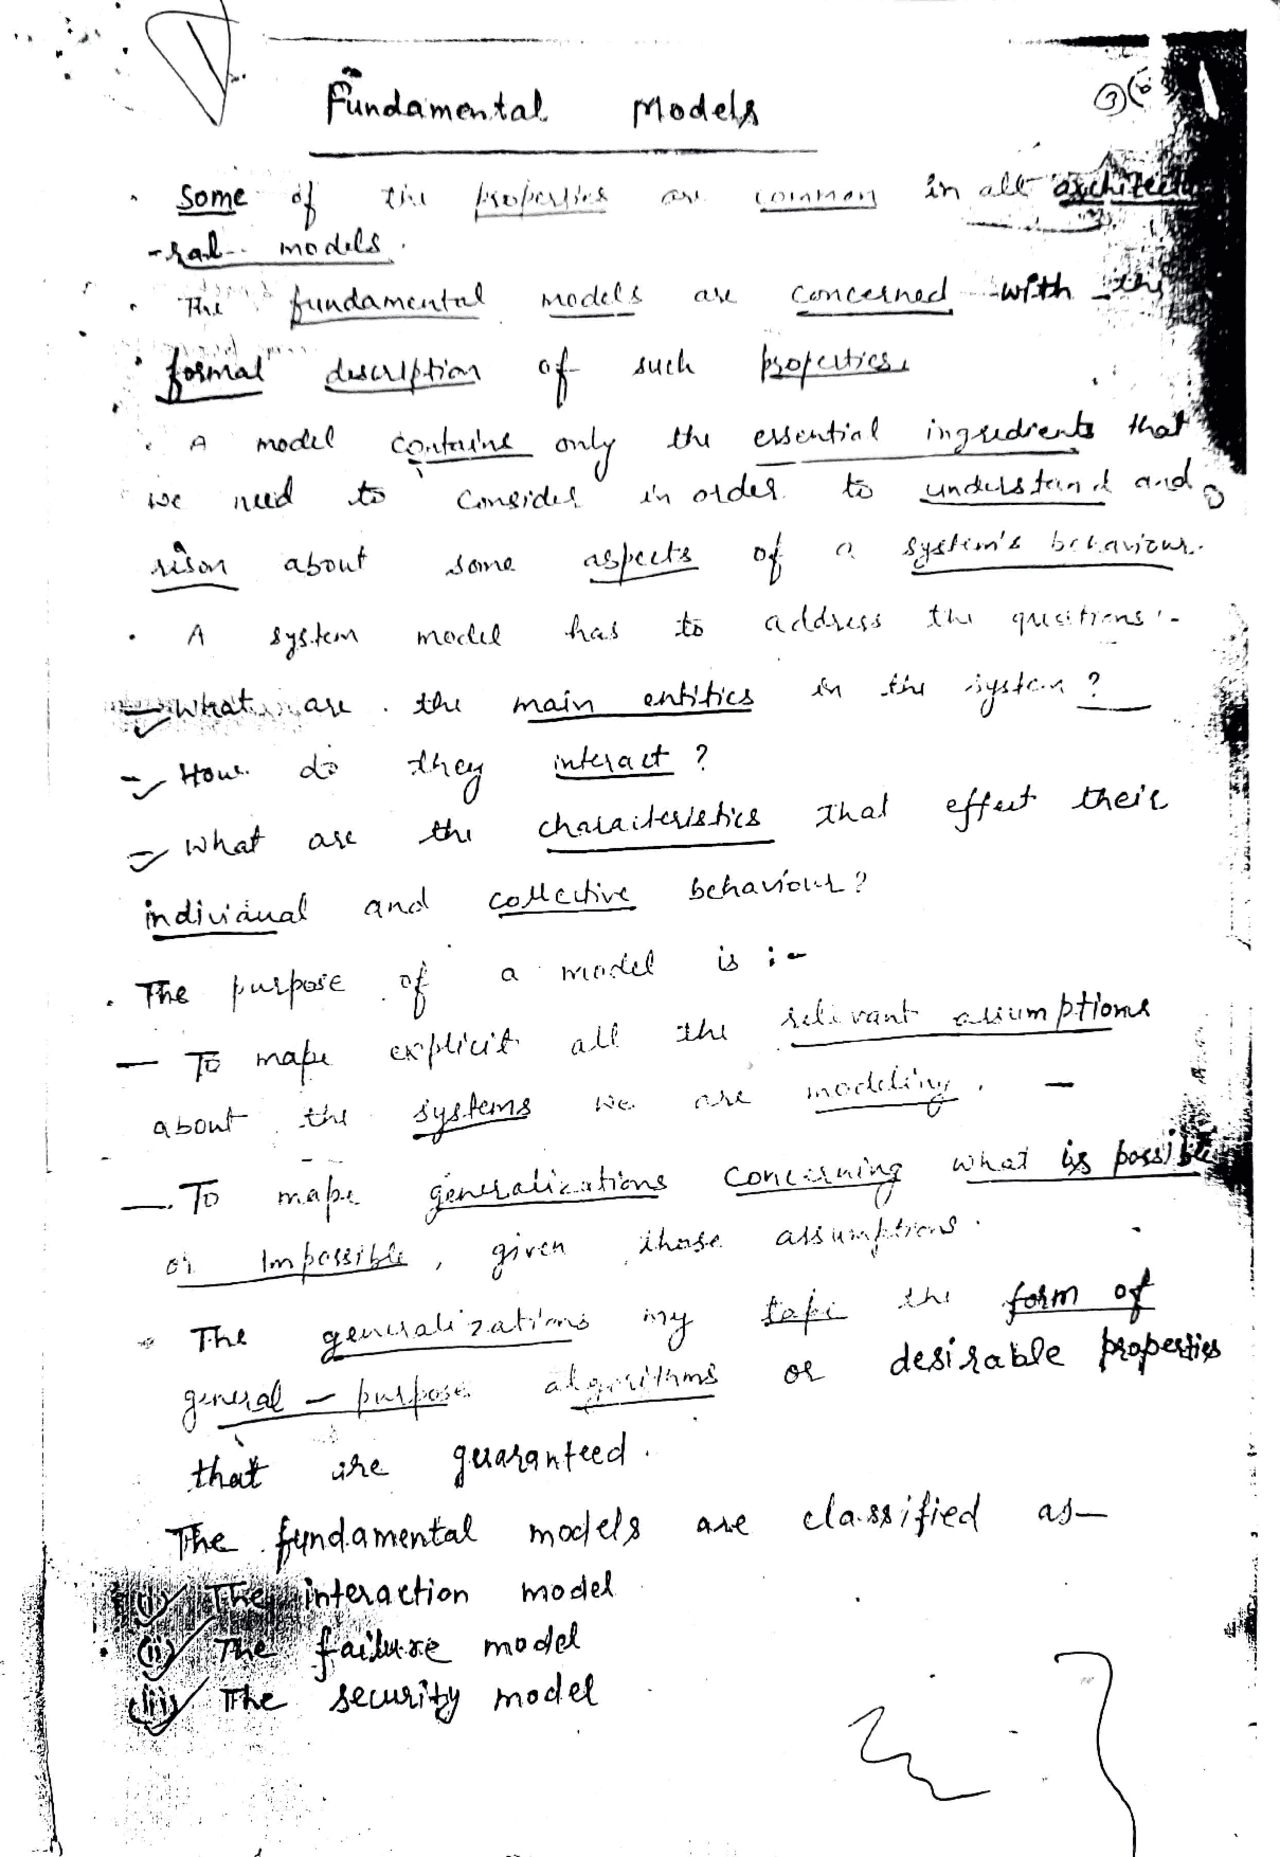 Fundamental Models
3(b)
. Some of the properties are common in all architectu
-ral models.
. The fundamental models are concerned with the
. formal description of such properties.
. A model contains only the essential ingredients that
we need to consider in order to understand and
reson about some aspects of a system's behaviour.
. A system model has to address the questions :-
- What are the main entities in the system ?
- How do they interact ?
- What are the characteristics that effect their
individual and collective behaviour?
. The purpose of a model is :-
- To make explicit all the relevant assumptions
about the systems we are modeling. -
- To make generalizations concerning what is possible
or Impossible, given those assumptions.
- The generalizations my take the form of
general - purpose algorithms or desirable properties
that are guaranteed.
The fundamental models are classified as-
(i) The interaction model
(ii) The failure model
(iii) The security model